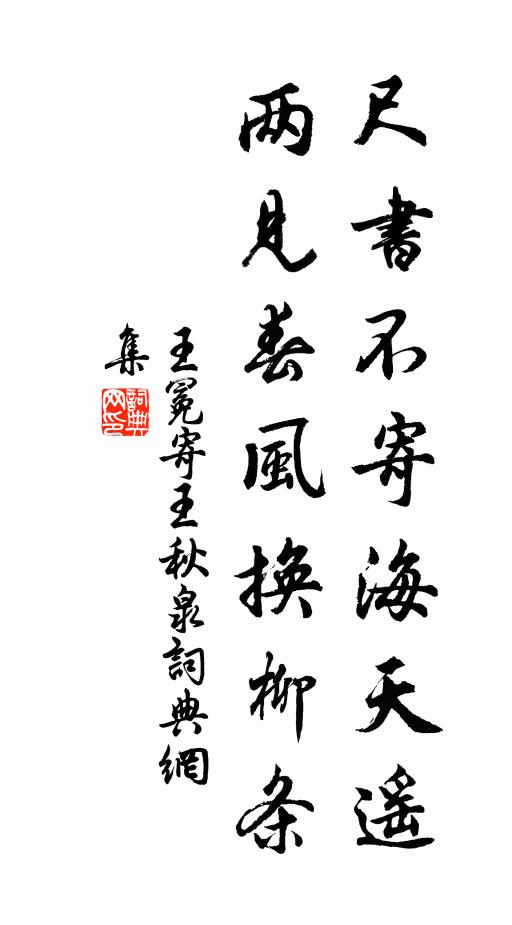 尺書不寄海天遥
两見春風換柳条
王冕寄王秋泉詞典網
集
詞典
网印